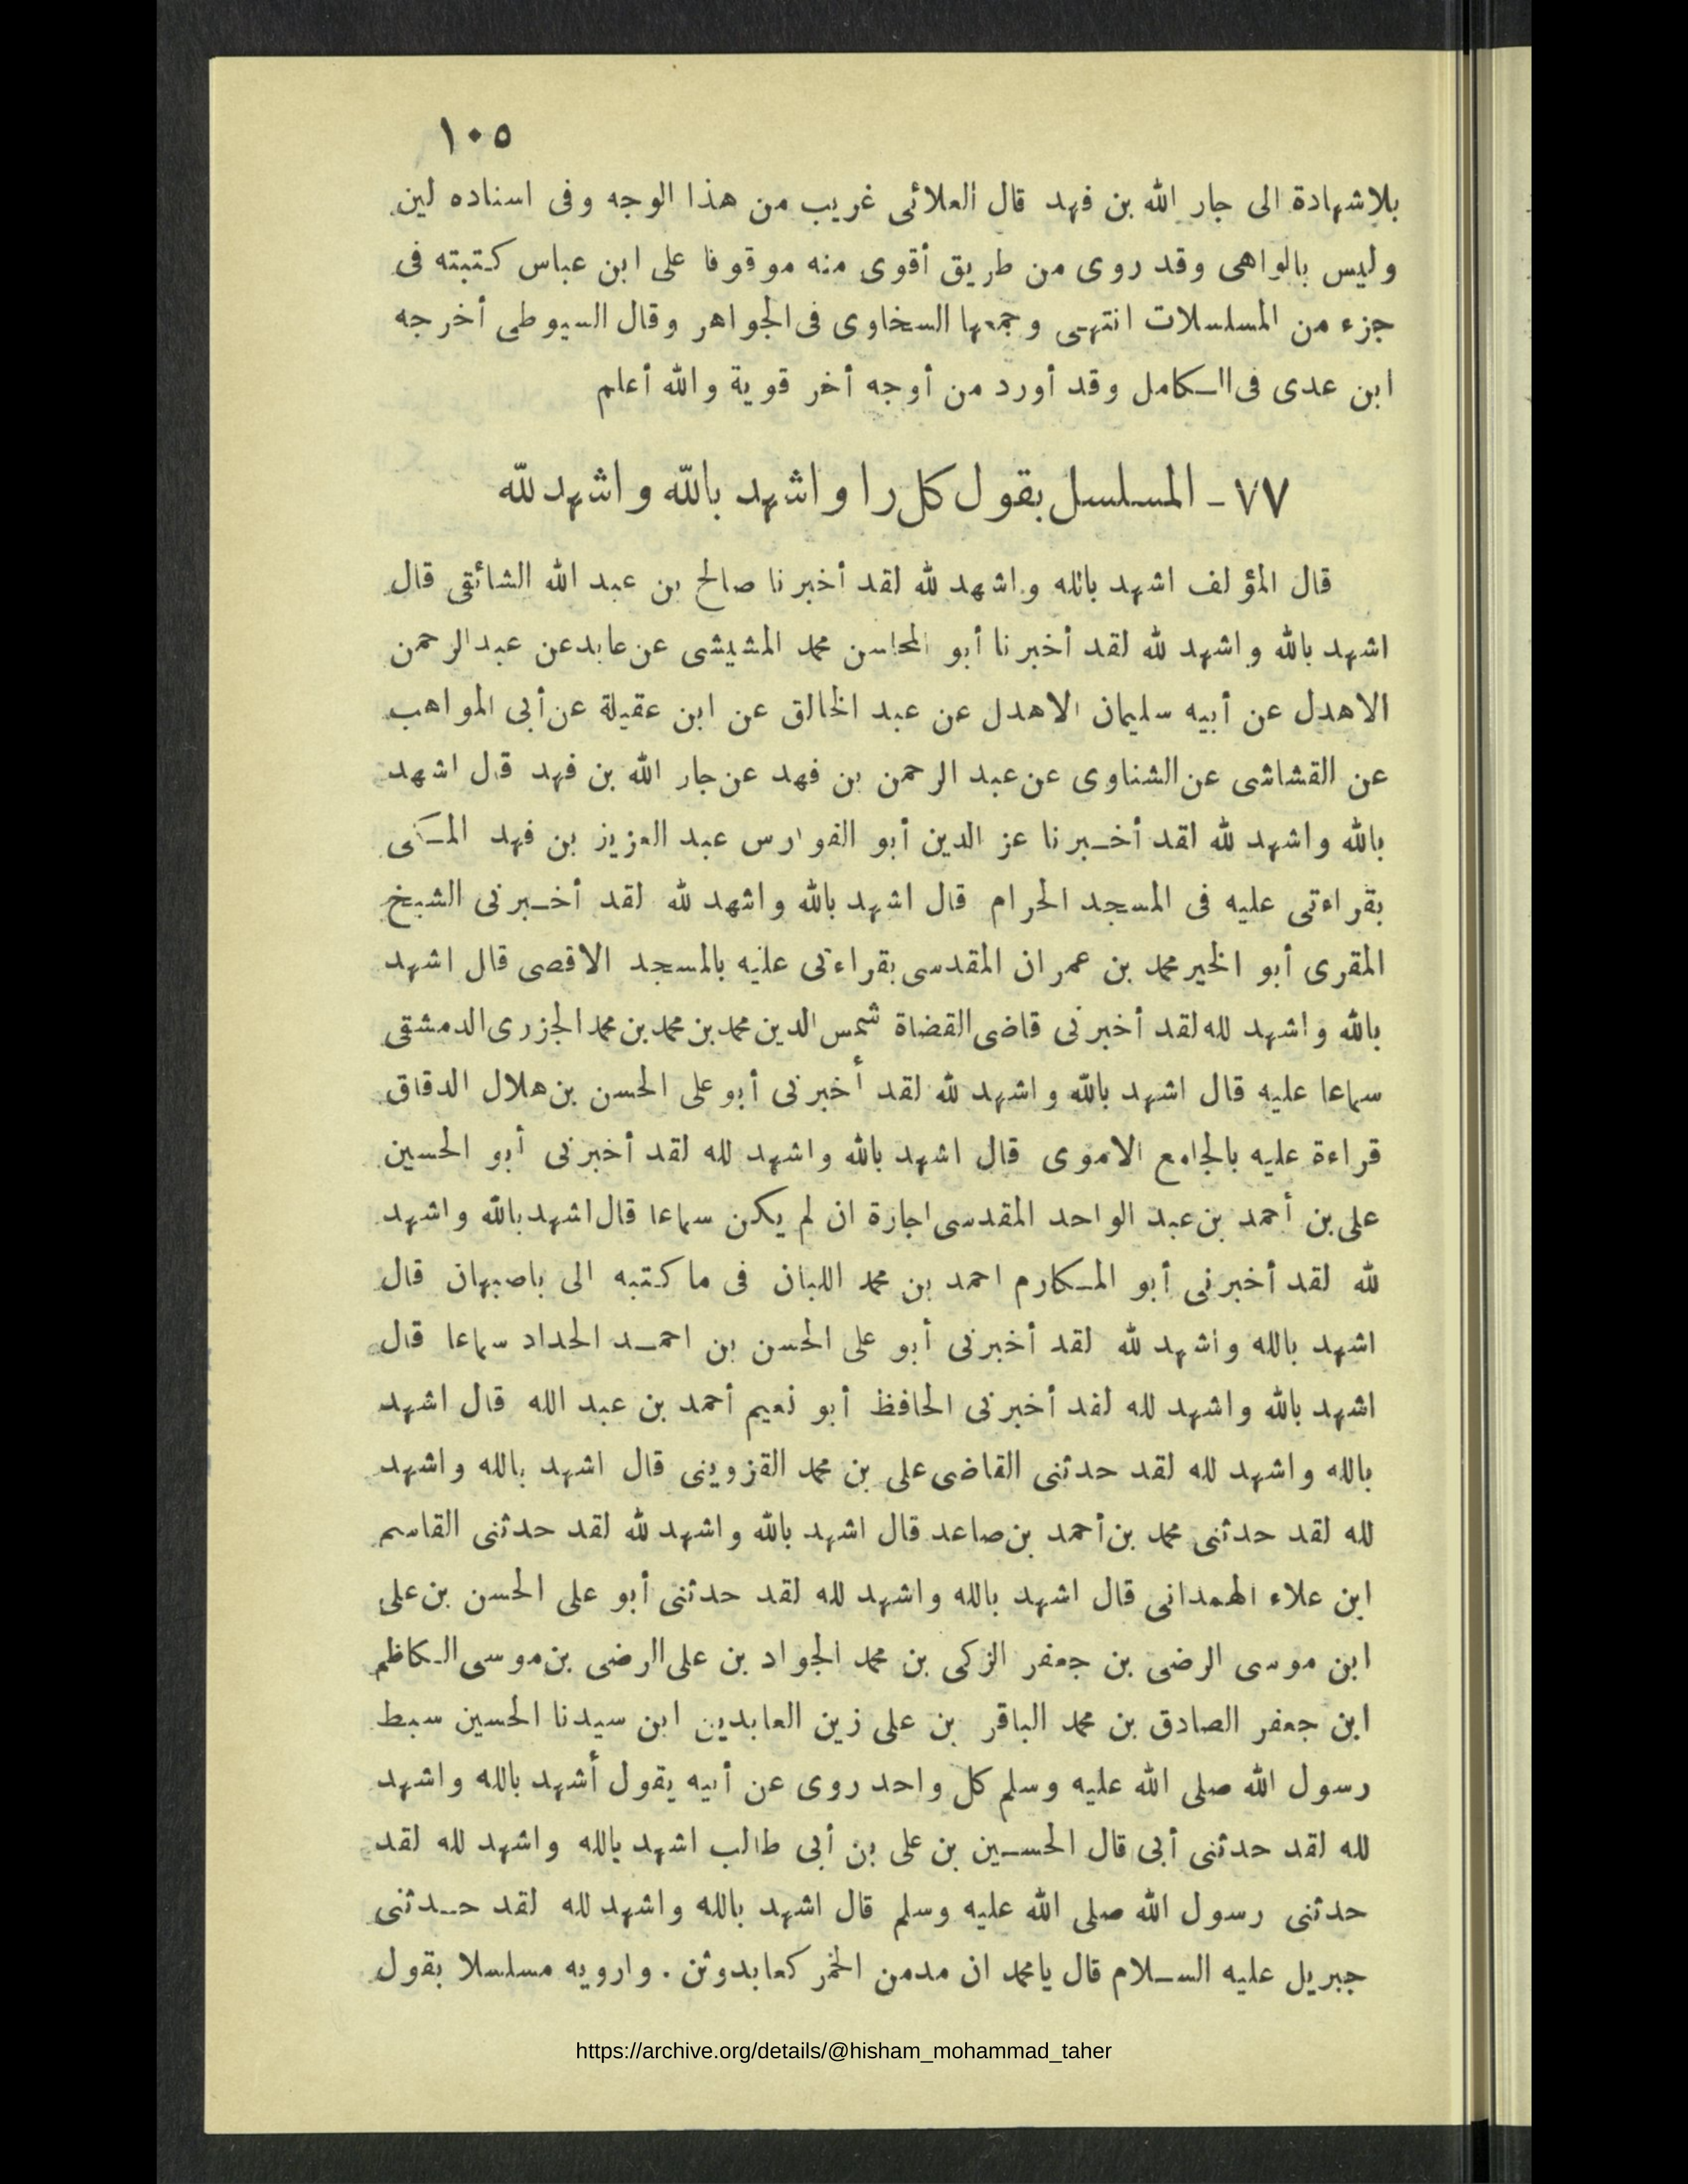 ١٠٥
بلاشهادة الى جار الله بن فهد قال العلائى غريب من هذا الوجه وفى اسناده لين
وليس بالواهى وقد روى من طريق أقوى منه موقوفا على ابن عباس كتبته فى
جزء من المسلسلات انتهى وجمعها السخاوى فى الجواهر وقال السيوطى أخرجه
ابن عدى فى الكامل وقد أورد من أوجه أخر قوية والله أعلم
٧٧ - المسلسل بقول كل راو اشهد بالله واشهد لله
قال المؤلف اشهد بالله واشهد لله لقد أخبرنا صالح بن عبد الله الشائقى قال
اشهد بالله واشهد لله لقد أخبرنا أبو المحاسن محمد المشيشى عن عابد عن عبد الرحمن
الاهدل عن أبيه سليمان الاهدل عن عبد الخالق عن ابن عقيلة عن أبى المواهب
عن القشاشى عن الشناوى عن عبد الرحمن بن فهد عن جار الله بن فهد قال اشهد
بالله واشهد لله لقد أخبرنا عز الدين أبو الفوارس عبد العزيز بن فهد المكى
بقراءتى عليه فى المسجد الحرام قال اشهد بالله واشهد لله لقد أخبرنى الشيخ
المقرى أبو الخير محمد بن عمران المقدسى بقراءتى عليه بالمسجد الاقصى قال اشهد
بالله واشهد لله لقد أخبرنى قاضى القضاة شمس الدين محمد بن محمد بن محمد الجزرى الدمشقى
سماعا عليه قال اشهد بالله واشهد لله لقد أخبرنى أبو على الحسن بن هلال الدقاق
قراءة عليه بالجامع الاموى قال اشهد بالله واشهد لله لقد أخبرنى أبو الحسين
على بن أحمد بن عبد الواحد المقدسى اجازة ان لم يكن سماعا قال اشهد بالله واشهد
لله لقد أخبرنى أبو المكارم احمد بن محمد اللبان فى ما كتبه الى باصبهان قال
اشهد بالله واشهد لله لقد أخبرنى أبو على الحسن بن احمد الحداد سماعا قال
اشهد بالله واشهد لله لقد أخبرنى الحافظ أبو نعيم أحمد بن عبد الله قال اشهد
بالله واشهد لله لقد حدثنى القاضى على بن محمد القزوينى قال اشهد بالله واشهد
لله لقد حدثنى محمد بن أحمد بن صاعد قال اشهد بالله واشهد لله لقد حدثنى القاسم
ابن علاء الهمدانى قال اشهد بالله واشهد لله لقد حدثنى أبو على الحسن بن على
ابن موسى الرضى بن جعفر الزكى بن محمد الجواد بن على الرضى بن موسى الكاظم
ابن جعفر الصادق بن محمد الباقر بن على زين العابدين ابن سيدنا الحسين سبط
رسول الله صلى الله عليه وسلم كل واحد روى عن أبيه يقول أشهد بالله واشهد
لله لقد حدثنى أبى قال الحسين بن على بن أبى طالب اشهد بالله واشهد لله لقد
حدثنى رسول الله صلى الله عليه وسلم قال اشهد بالله واشهد لله لقد حدثنى
جبريل عليه السلام قال يامحمد ان مدمن الخمر كعابد وثن . وارويه مسلسلا بقول
https://archive.org/details/@hisham_mohammad_taher